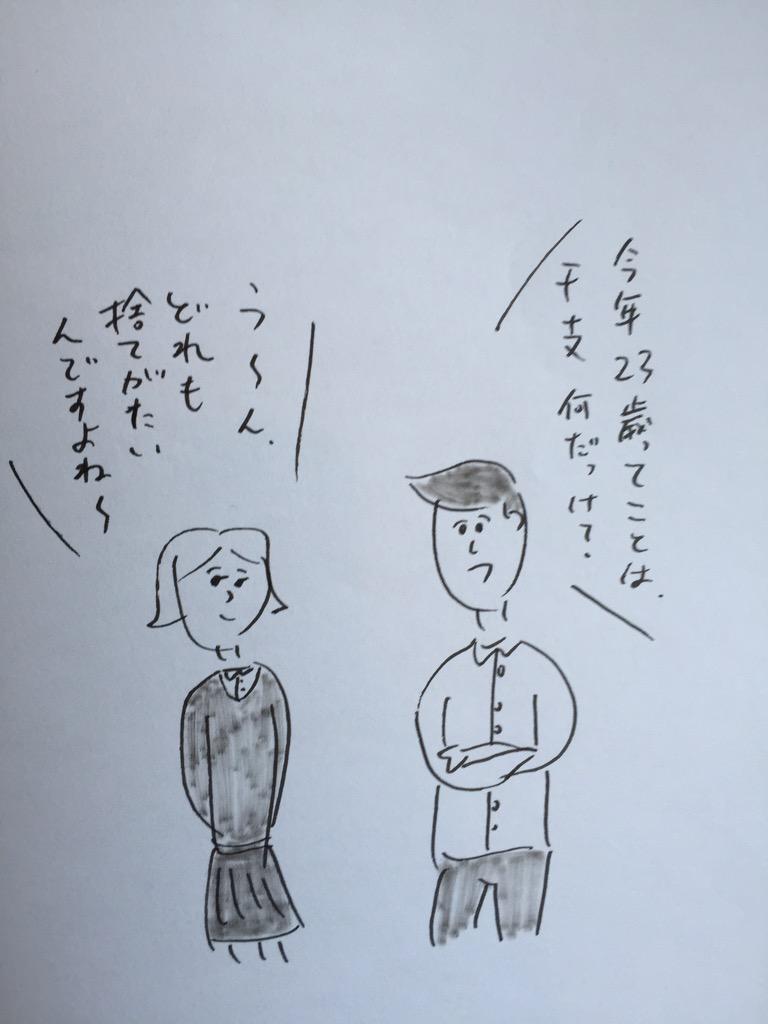 今年23歳ってことは、
干支何だっけ?
う〜ん、
どれも
捨てがたい
んですよね〜